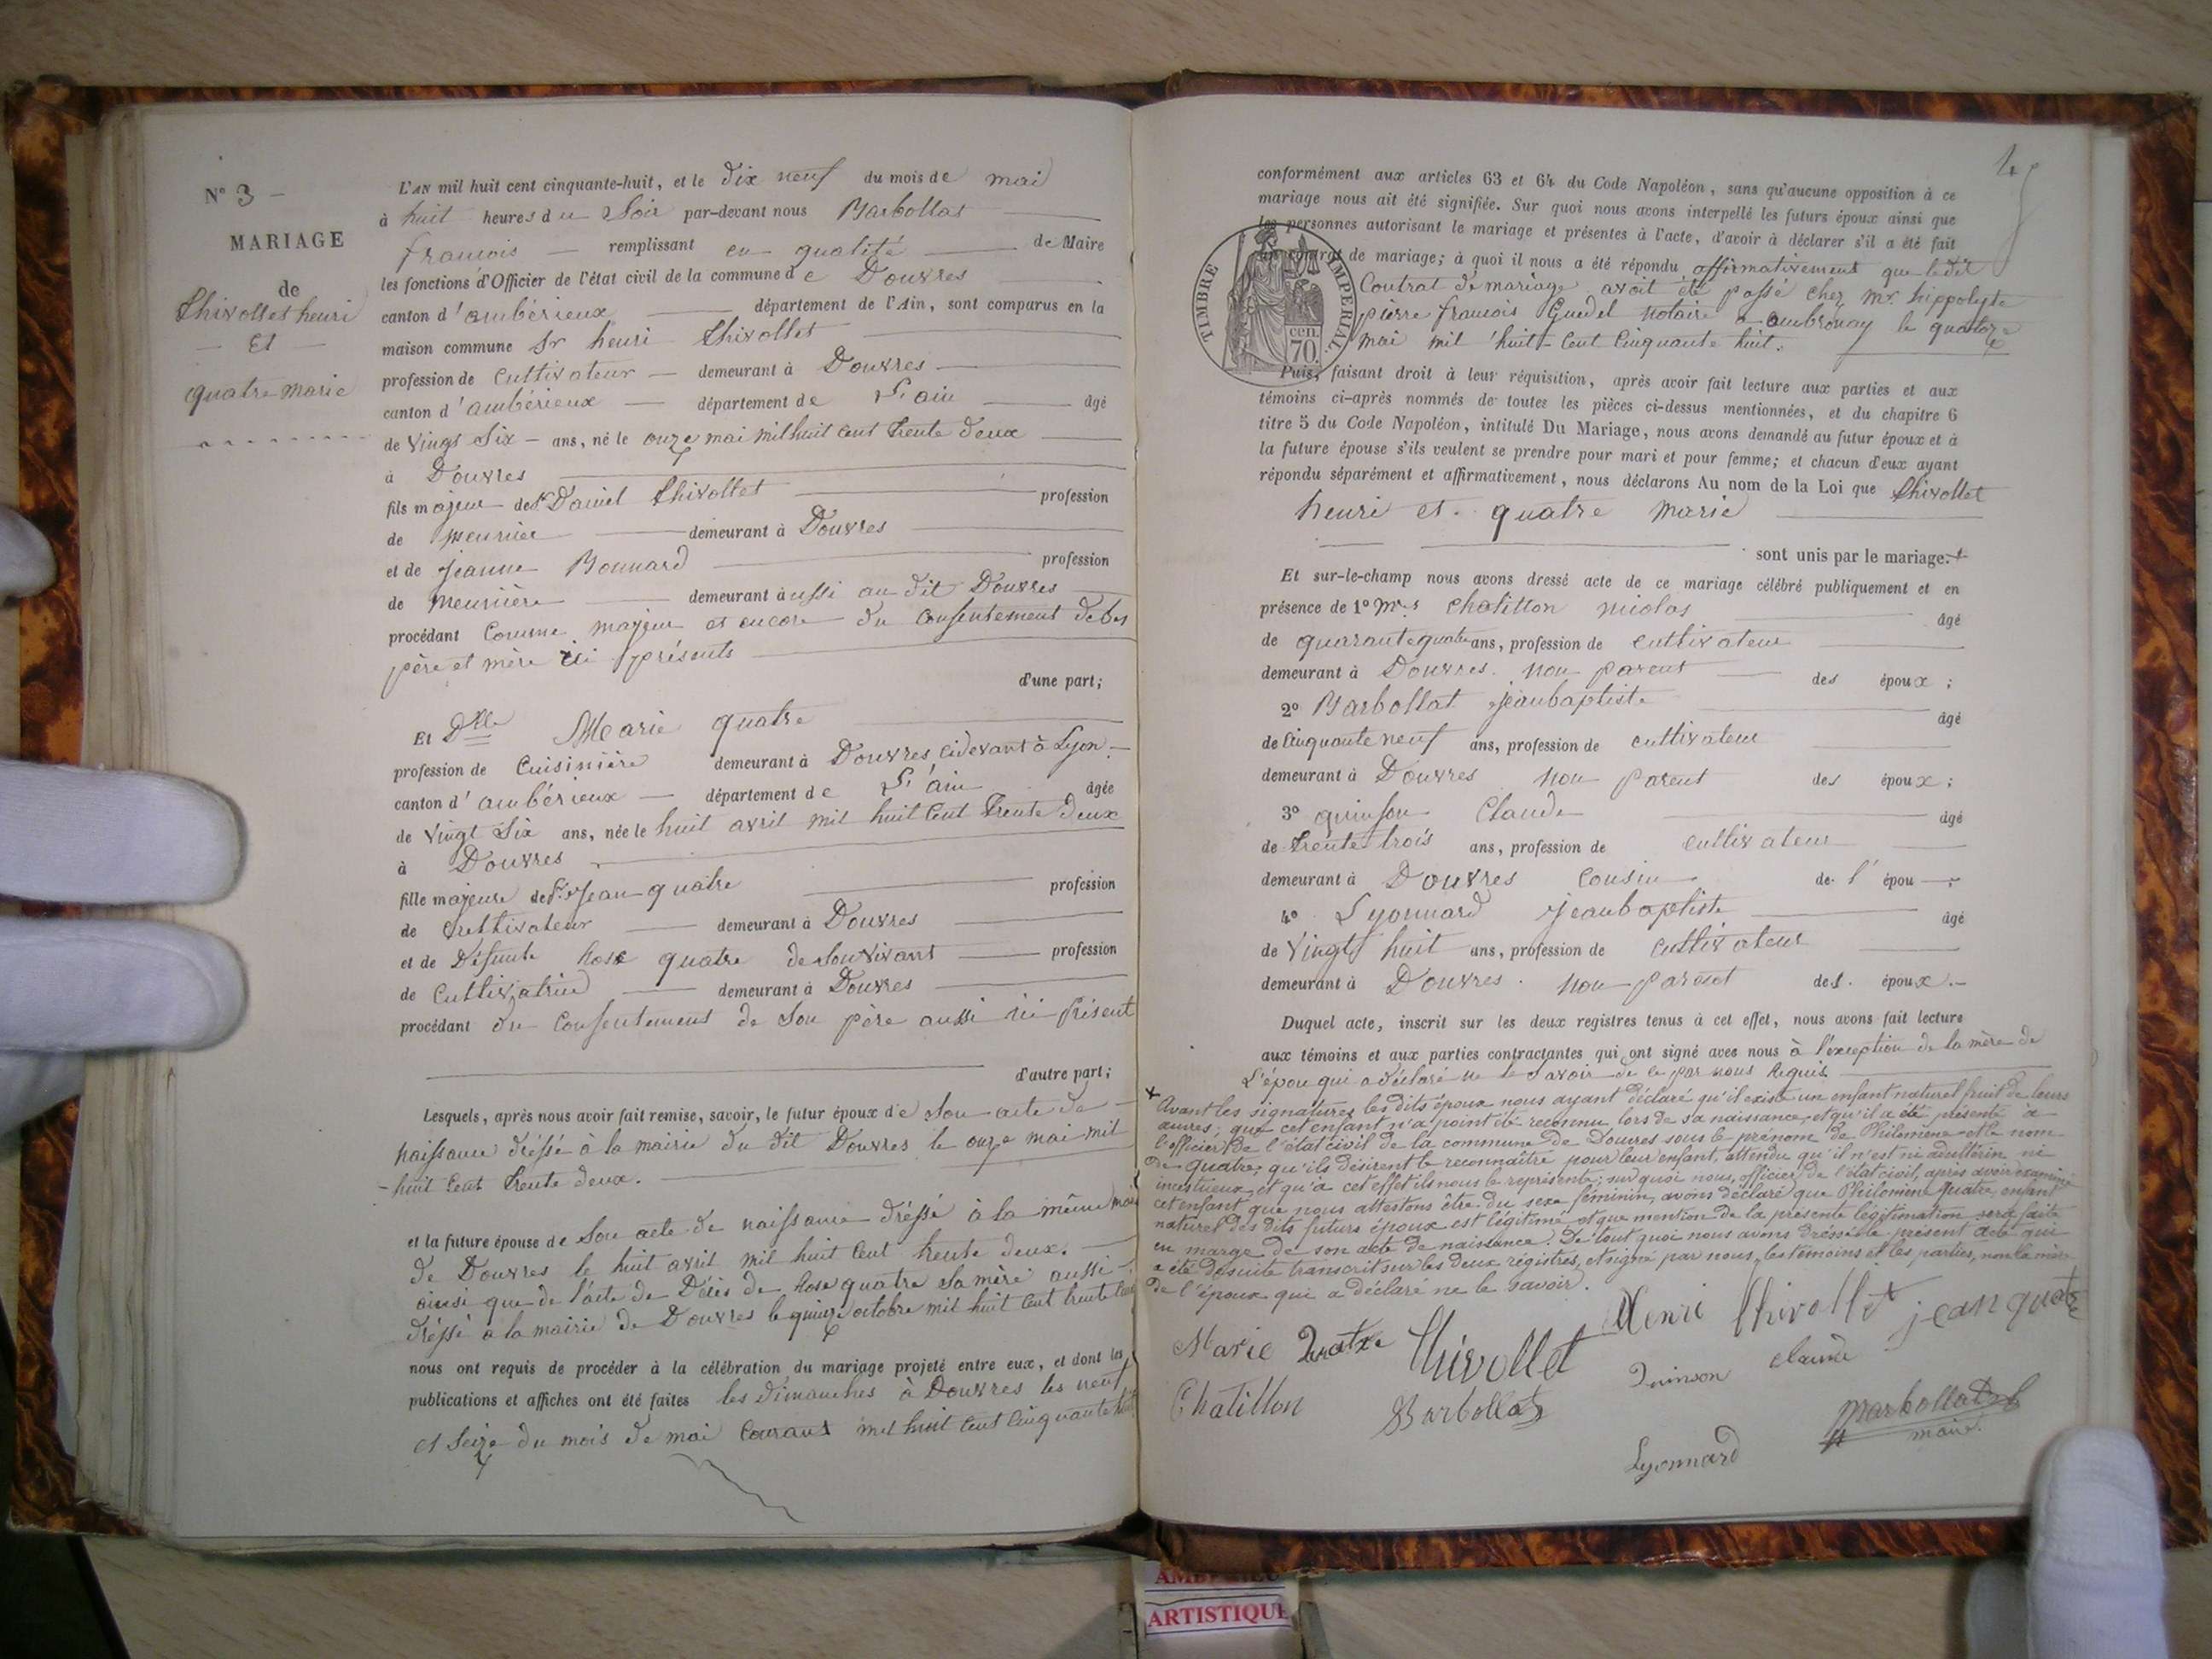 N° 3 -
MARIAGE
de
Thivollet henri
- Et -
quatre marie
L'AN mil huit cent cinquante-huit, et le dix neuf du mois de mai
à huit heures du Soir par-devant nous Barbollat
francois remplissant en qualité de Maire
les fonctions d'Officier de l'état civil de la commune de Douvres
canton d'ambérieux département de l'Ain, sont comparus en la
maison commune Sr henri Thivollet
profession de Cultivateur demeurant à Douvres
canton d'ambérieux département de L'ain âgé
de Vingt Six ans, né le onze mai mil huit Cent Trente deux
à Douvres
fils majeur de Sr Daniel Thivollet profession
de meunier demeurant à Douvres
et de jeanne Bonnard profession
de meunière demeurant aussi au dit Douvres
procédant Comme majeur et encore du Consentement de ses
père et mère ici présents
d'une part;
Et Dlle Marie quatre
profession de Cuisinière demeurant à Douvres, cidevant à Lyon
canton d'ambérieux département de L'ain âgée
de Vingt Six ans, née le huit avril mil huit Cent Trente deux
à Douvres
fille majeure de Sr Jean quatre profession
de Cultivateur demeurant à Douvres
et de Défunte Rose quatre de Son Vivant profession
de Cultivatrice demeurant à Douvres
procédant du Consentement de Son père aussi ici présent
d'autre part;
Lesquels, après nous avoir fait remise, savoir, le futur époux de Son acte de
naissance dréssé à la mairie du dit Douvres le onze mai mil
huit Cent Trente deux.
et la future épouse de Son acte de naissance dréssé à la même mairie
de Douvres le huit avril mil huit Cent trente deux.
ainsi que de l'acte de Décès de Rose quatre Sa mère aussi
dréssé a la mairie de Douvres le quinze octobre mil huit Cent trente
nous ont requis de procéder à la célébration du mariage projeté entre eux, et dont les
publications et affiches ont été faites les Dimanches à Douvres les neuf
et Seize du mois de mai Courant mil huit Cent Cinquante huit
conformément aux articles 63 et 64 du Code Napoléon, sans qu'aucune opposition à ce
mariage nous ait été signifiée. Sur quoi nous avons interpellé les futurs époux ainsi que
les personnes autorisant le mariage et présentes à l'acte, d'avoir à déclarer s'il a été fait
un contrat de mariage; à quoi il nous a été répondu affirmativement que ledit
Contrat de mariage avoit été passé chez mr. hippolyte
pierre francois Guedel notaire a ambronay le quatorze
mai mil huit Cent Cinquante huit.
TIMBRE IMPERIAL
cen.
70.
Puis, faisant droit à leur réquisition, après avoir fait lecture aux parties et aux
témoins ci-après nommés de toutes les pièces ci-dessus mentionnées, et du chapitre 6
titre 5 du Code Napoléon, intitulé Du Mariage, nous avons demandé au futur époux et à
la future épouse s'ils veulent se prendre pour mari et pour femme; et chacun d'eux ayant
répondu séparément et affirmativement, nous déclarons Au nom de la Loi que Thivollet
henri et quatre marie
sont unis par le mariage. +
Et sur-le-champ nous avons dressé acte de ce mariage célébré publiquement et en
présence de 1° Mrs Chatillon nicolas âgé
de quarante quatre ans, profession de Cultivateur
demeurant à Douvres non parent des époux;
2° Barbollat Jeanbaptiste âgé
de Cinquante neuf ans, profession de cultivateur
demeurant à Douvres non parent des époux;
3° quinson Claude âgé
de trente trois ans, profession de Cultivateur
demeurant à Douvres Cousin de l'épou
4° Lyonnard jeanbaptiste âgé
de Vingt huit ans, profession de Cultivateur
demeurant à Douvres non parent des époux.
Duquel acte, inscrit sur les deux registres tenus à cet effet, nous avons fait lecture
aux témoins et aux parties contractantes qui ont signé avec nous à l'exception de la mère de
L'épou qui a déclaré ne le Savoir de ce par nous Requis
+ Avant les signatures les dits époux nous ayant déclaré qu'il existe un enfant naturel fruit de leurs
œuvres; que cet enfant n'a point été reconnu lors de sa naissance, et qu'il a été présenté à
l'officier de l'état civil de la commune de Douvres sous le prénom de Philomène et le nom
de quatre, qu'ils désirent le reconnaître pour leur enfant, attendu qu'il n'est ni adultérin ni
incestueux, et qu'à cet effet ils nous le représente; sur quoi nous, officier de l'état civil, après avoir examiné
cet enfant que nous attestons être du sexe féminin, avons déclaré que Philomène Quatre, enfant
naturel des dits futurs époux est légitimé et que mention de la présente légitimation sera faite
en marge de son acte de naissance. De tout quoi nous avons dréssé le présent acte qui
a été desuite transcrit sur les deux régistres, et signé par nous, les témoins et les parties, non la mère
de l'époux qui a déclaré ne le savoir.
Marie Quatre Thivollet Henri Thivollet jean quatre
Chatillon Barbollat Quinson claude
Lyonnard Barbollat
maire.
ARTISTIQUE